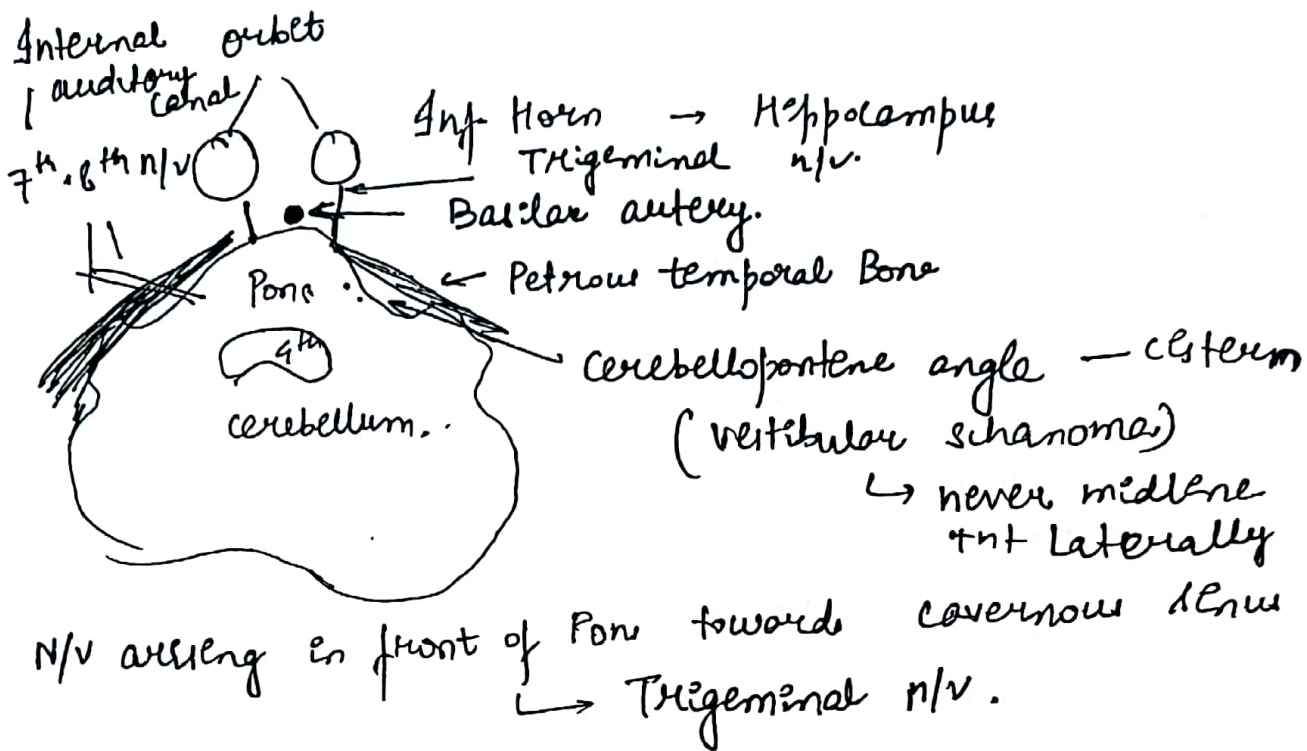 Internal orbit
auditory
canal
7th. 8th n/v
Inf Horn → Hippocampus
Trigeminal n/v.
Basilar artery.
Petrous temporal Bone
Pons
4th
cerebellum.
cerebellopontine angle — cistern
(vestibular schanoma)
↳ never midline
Laterally
N/V arising in front of Pons towards cavernous sinus
↳ Trigeminal n/v.